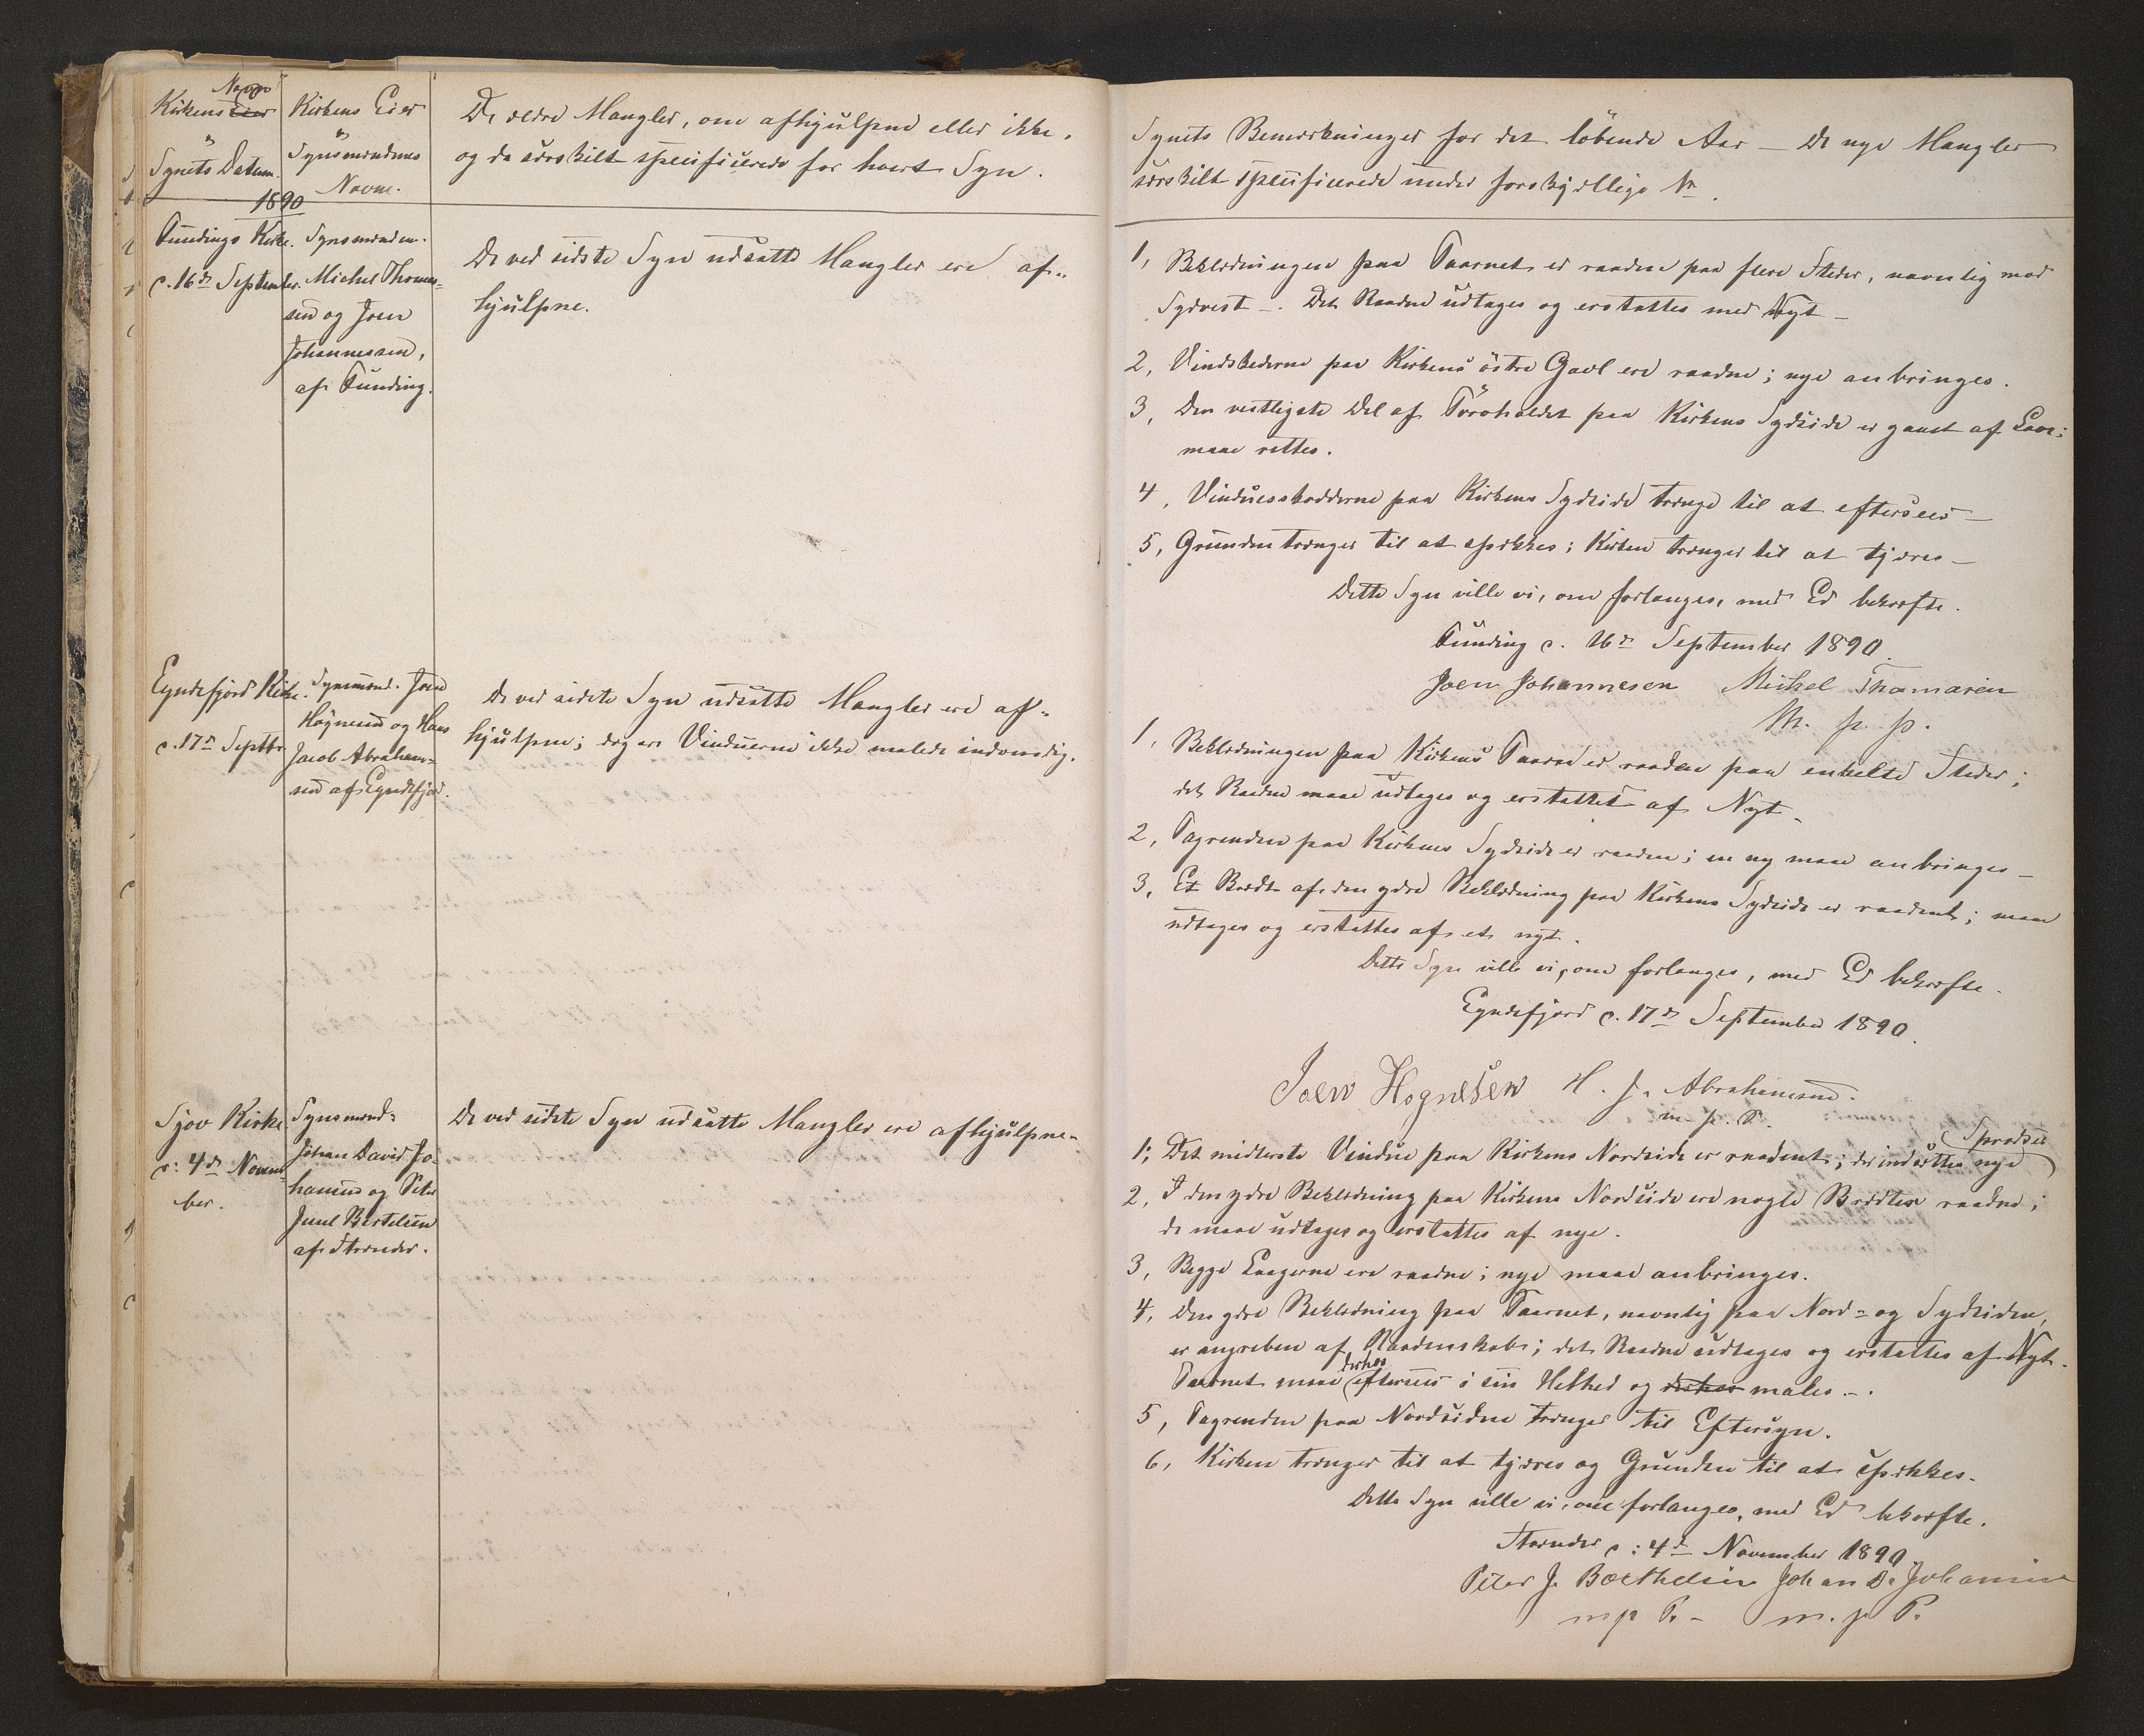 Navn
Kirkens Eier
"
Synets Datum.
1890
Kirkens Eier
"
Synsmændenes
Navne.
De ældre Mangler, om afhjulpne eller ikke,
og da særskilt specificerede for hvert Syn.
Fundings Kirke.
d. 16de September.
Synsmændene.
Michel Thomas-
sen og Joen
Johannessen,
af Funding.
De ved sidste Syn udsatte Mangler ere af-
hjulpne.
Eyndefjord Kirke.
d. 17de Septbr.
Synsmænd. Joen
Høgnesen og Hans
Jacob Abraham-
sen af Eyndefjord.
De ved sidste Syn udsatte Mangler ere af-
hjulpne; dog ere Vinduerne ikke malede indvendig.
Sjov Kirke
d: 4de Novem-
ber.
Synsmænd:
Johan David Jo-
hansen og Peter
Juul Bertelsen
af Strænder.
De ved sidste Syn udsatte Mangler ere afhjulpne.
Synets Bemærkninger for det løbende Aar — De nye Mangler
særskilt specificerede under forskjællige Nr.
1, Beklædningen paa Taarnet er raaden paa flere Steder, navnlig mod
Sydvest —. Det Raadne udtages og erstattes med Nyt —
2, Vindskederne paa Kirkens östre Gavl ere raadne; nye anbringes.
3, Den vestligste Del af Törvholdet paa Kirkens Sydside er gaaet af Lave;
maae rettes.
4, Vinduesskodderne paa Kirkens Sydside trænge til at eftersees —
5, Grunden trænger til at spækkes; Kirken trænger til at tjæres —
Dette Syn ville vi, om forlanges, med Ed bekræfte.
Funding d. 16de September 1890.
Joen Johannesen Michel Thomasen
M. p. p.
1, Beklædningen paa Kirkens Taarn er raaden paa enkelte Steder;
det Raadne maae udtages og erstattes af Nyt.
2, Tagrenden paa Kirkens Sydside er raaden; en ny maae anbringes —
3, Et Brædt af den ydre Beklædning paa Kirkens Sydside er raadent; maae
udtages og erstattes af et nyt.
Dette Syn ville vi, om forlanges, med Ed bekræfte.
Eyndefjord d. 17de September 1890.
Joen Høgnesen H. J. Abrahamsen.
m. p. P.
Sprodser
1; Det midterste Vindue paa Kirkens Nordside er raadent; der indsættes nye
2, I den ydre Beklædning paa Kirkens Nordside ere nogle Brædter raadne;
de maae udtages og erstattes af nye.
3, Begge Laagerne ere raadne; nye maae anbringes.
4, Den ydre Beklædning paa Taarnet, navnlig paa Nord- og Sydsiden,
er angreben af Raadenskab; det Raadne udtages og erstattes af Nyt.
derhos
Taarnet maae eftersees i sin Helhed og derhos males —.
5, Tagrenden paa Nordsiden trænger til Eftersyn.
6, Kirken trænger til at tjæres og Grunden til at spækkes.
Dette Syn ville vi, om forlanges, med Ed bekræfte.
Strænder d: 4de November 1890.
Peter J. Barthelsen Johan D. Johansen
m p P. — m. p P.